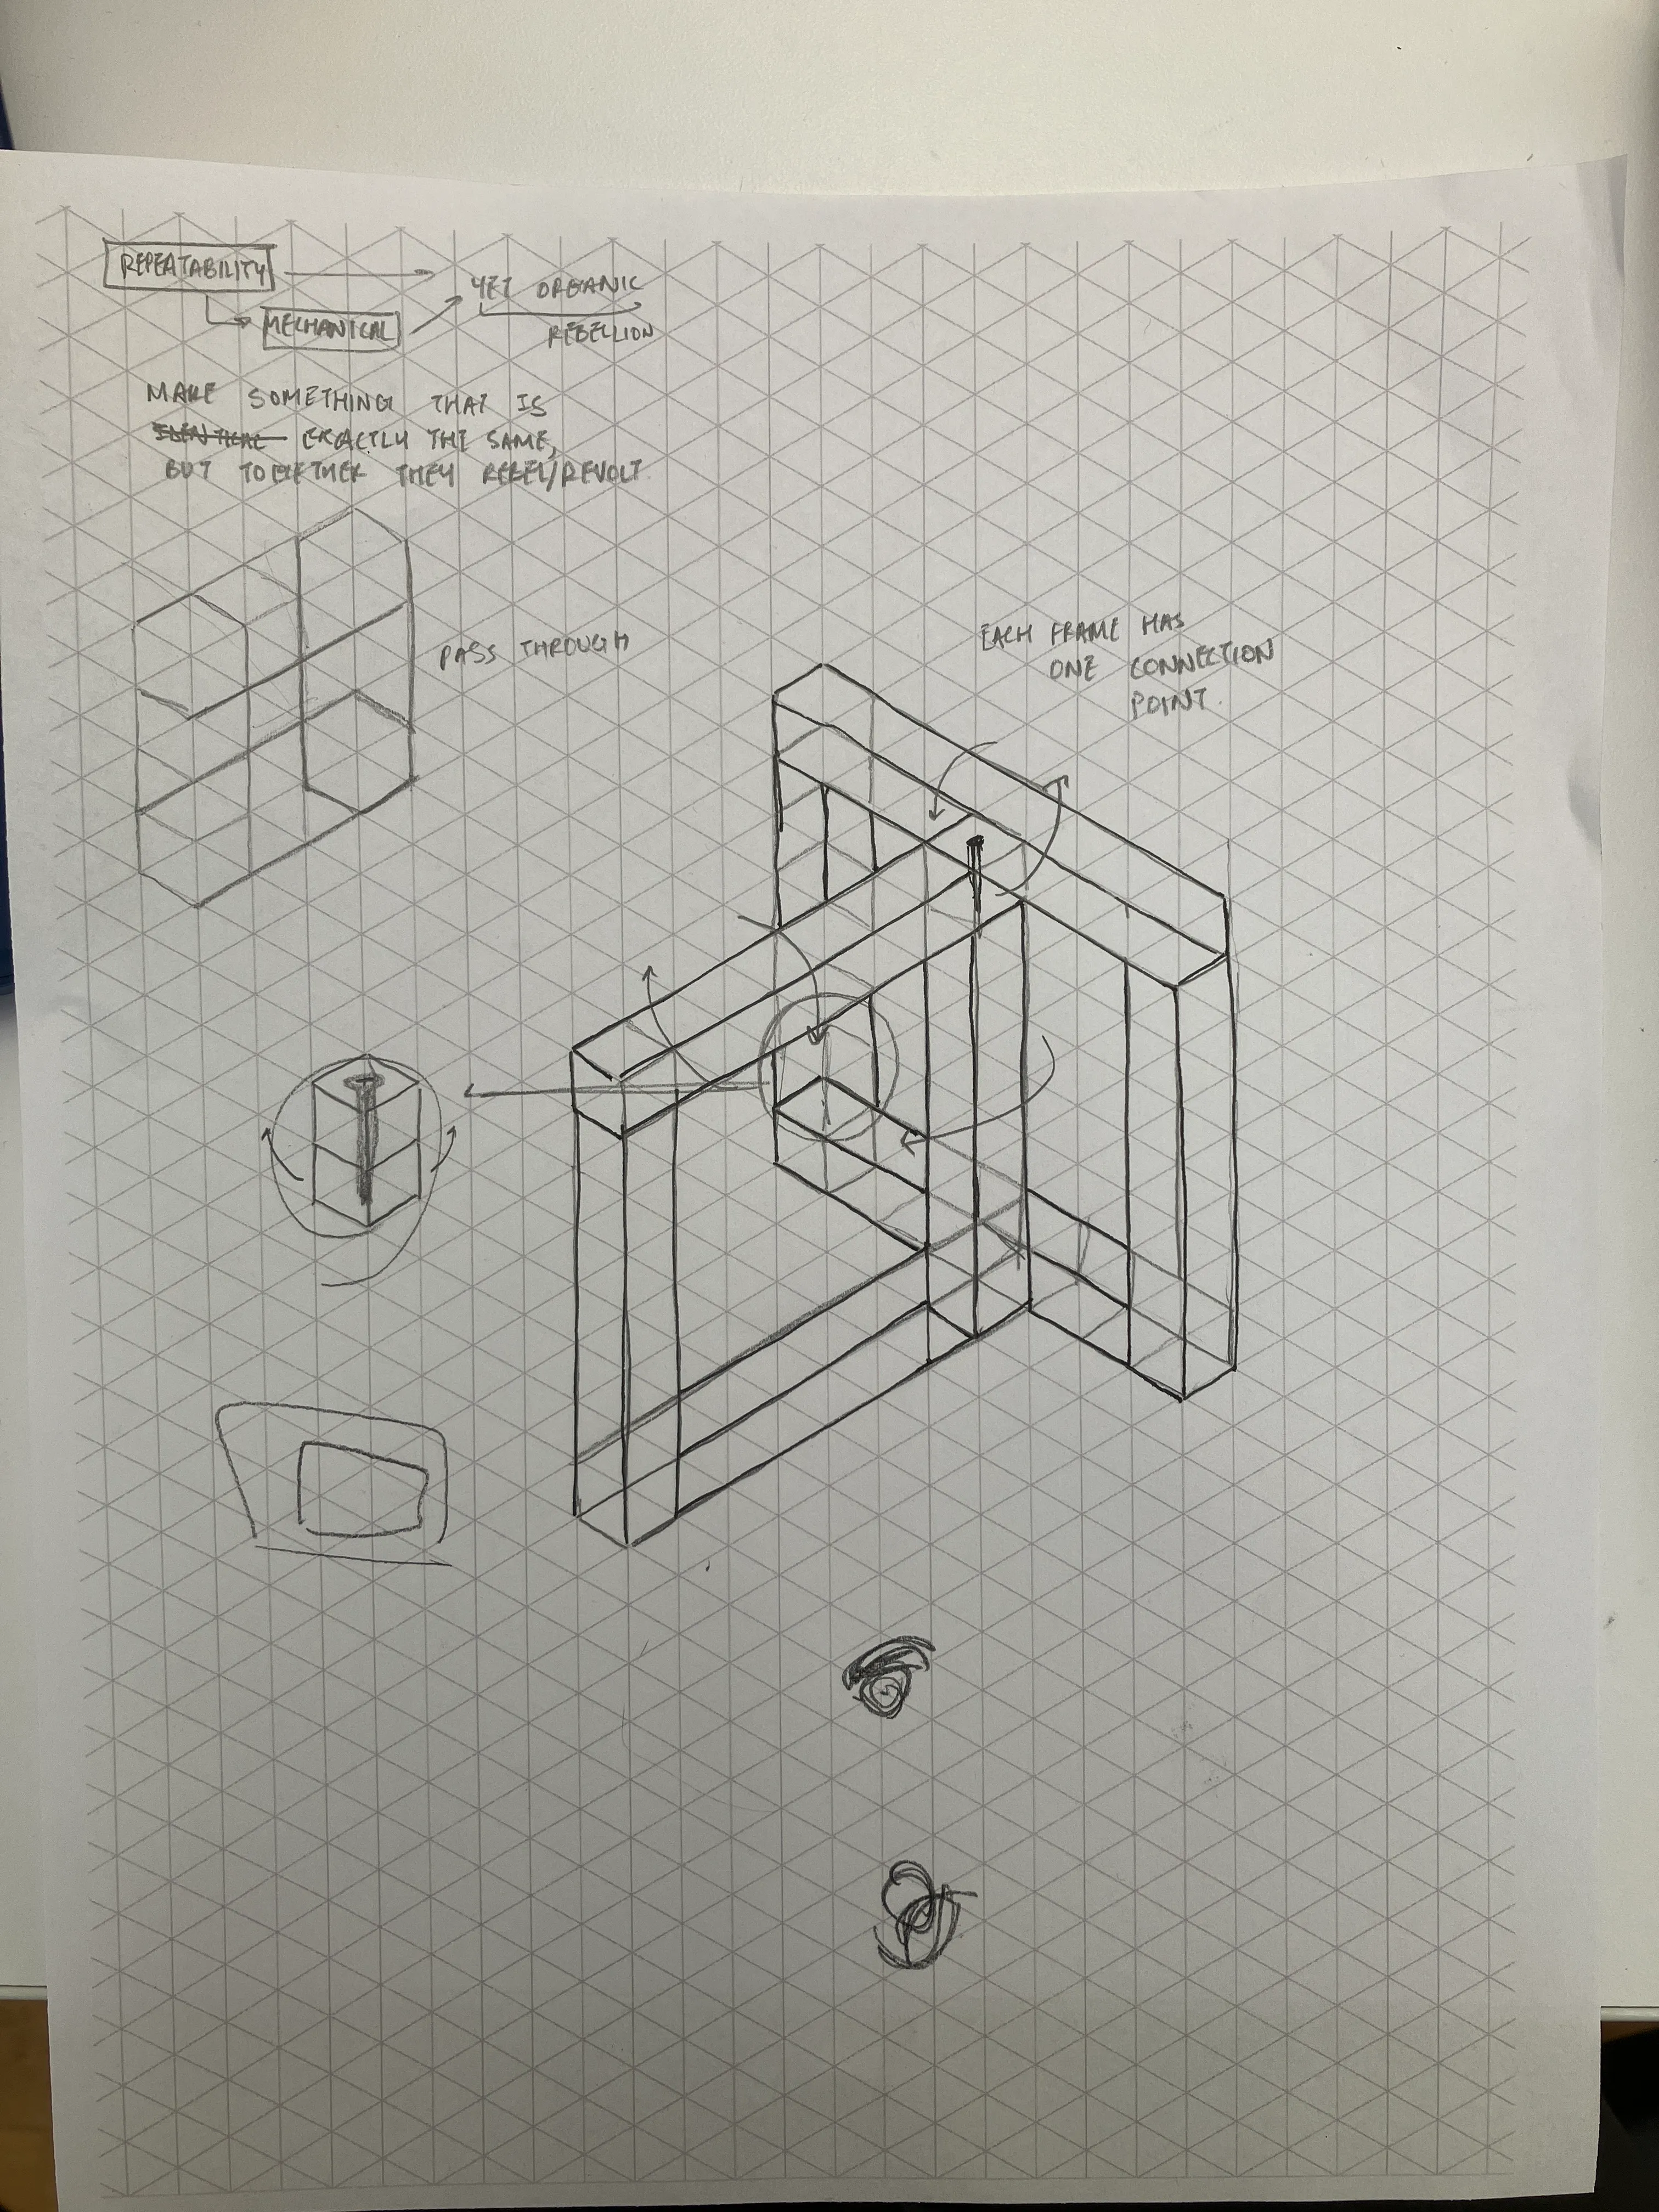 REPEATABILITY
YET ORGANIC
MECHANICAL
REBELLION
MAKE SOMETHING THAT IS
IDENTICAL EXACTLY THE SAME,
BUT TOGETHER THEY REBEL/REVOLT
PASS THROUGH
EACH FRAME HAS
ONE CONNECTION
POINT.